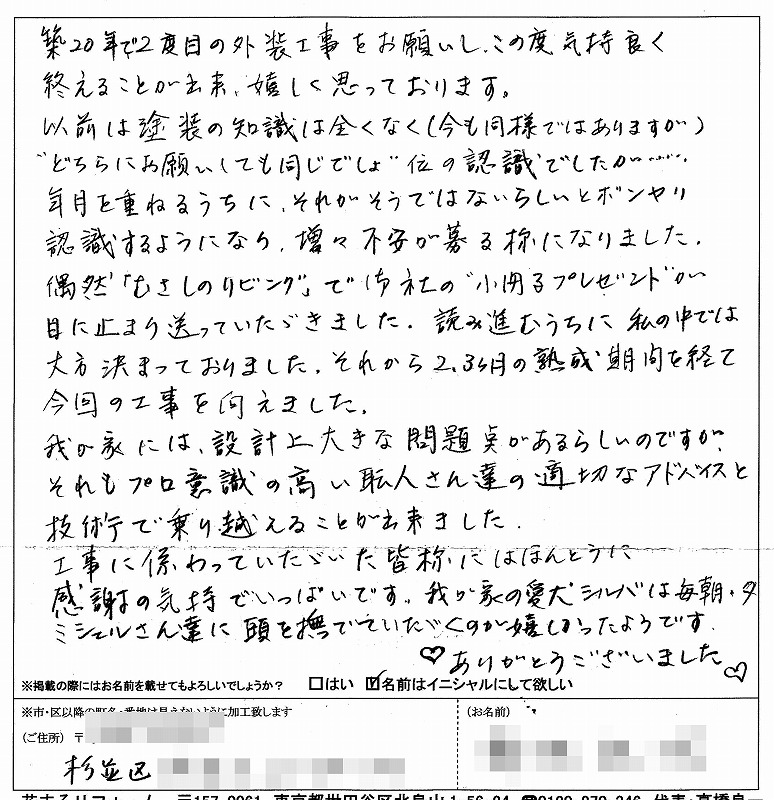 築20年で2度目の外装工事をお願いし、この度気持良く
終えることが出来、嬉しく思っております。
以前は塗装の知識は全くなく(今も同様ではありますが)
“どちらにお願いしても同じでしょ”位の認識でしたが……。
年月を重ねるうちに、それがそうではないらしいとボンヤリ
認識するようになり、増々不安が募る様になりました。
偶然「むさしのリビング」で御社の“小冊子プレゼント”が
目に止まり送っていただきました。読み進むうちに私の中では
大方決まっておりました。それから2.3ヶ月の熟成期間を経て
今回の工事を向えました。
我が家には、設計上大きな問題点があるらしいのですが、
それもプロ意識の高い職人さん達の適切なアドバイスと
技術で乗り越えることが出来ました。
工事に係わっていただいた皆様にはほんとうに
感謝の気持でいっぱいです。我が家の愛犬シルバは毎朝・夕
ミシェルさん達に頭を撫でていただくのが嬉しかったようです。
♡ありがとうございました♡
※掲載の際にはお名前を載せてもよろしいでしょうか? □はい ☑名前はイニシャルにして欲しい
※市・区以降の町名・番地は見えないように加工致します
(お名前)
(ご住所) 〒
杉並区